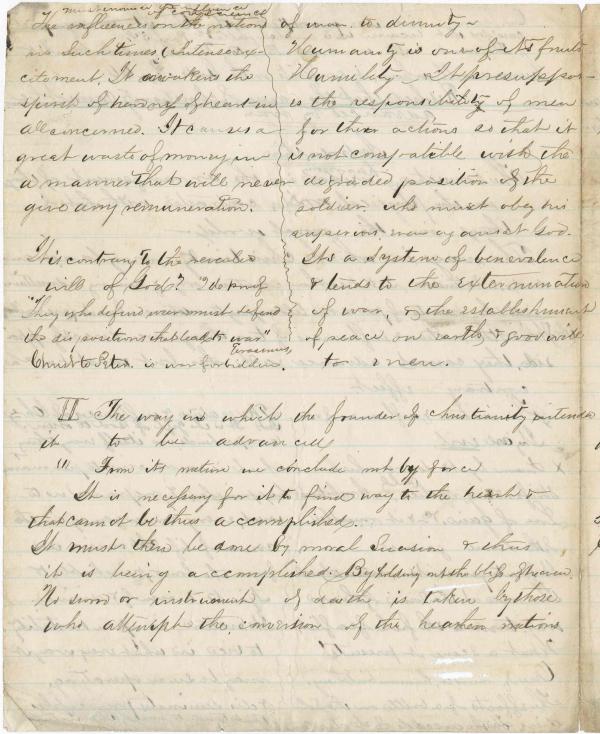 The influences on the nation
in such times (Intense ex-
citement, It awakens the
spirit of                of heart in
all concerned. It causes a
great waste of money in
a manner that will never
give any remuneration.
It is contrary to the revealed
will of God? I do proof
"They who defend war must defend
the dispositions that lead to war"
Erasmus,
Christ to Peter. is war forbidden.
of man to divinity-
Humanity is one of its fruits
Humility. It presuppos-
es the responsibility of men
for their actions so that it
is not compatible with the
degraded position of the
soldier who must obey his
superiors even against God.
Its a system of benevolence
& tends to the extermination
of war, & the establishment
of peace on earth & good will
to men.
II The way in which the founder of Christianity intends
it to be advanced
" From its nature we conclude not by force
It is necessary for it to find way to the heart &
that cannot be thus accomplished.
It must then be done by moral Suasion & thus
it is being accomplished. By holding out the bliss of heaven.
No sword or instrument of death is taken by those
who attempt the conversion of the heathen nations